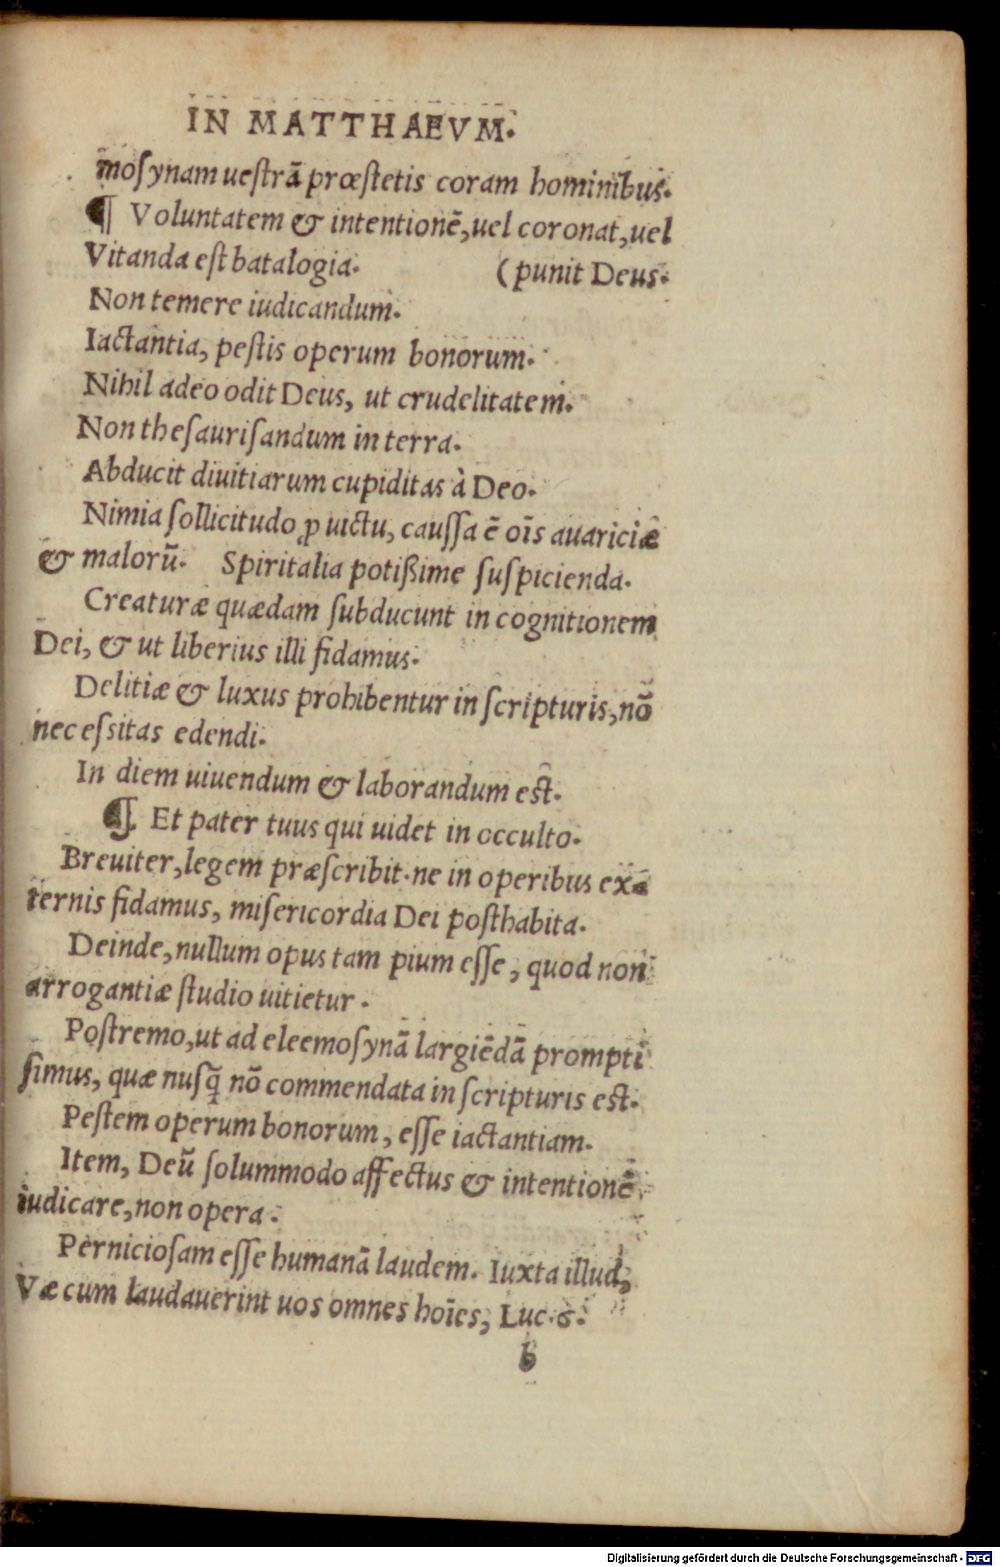 IN MATTHAEVM.
moſynam ueſtrã prœſtetis coram hominibus.
¶ Voluntatem & intentionẽ, uel coronat, uel
Vitanda eſt batalogia. (punit Deus.
Non temere iudicandum.
Iactantia, peſtis operum bonorum.
Nihil adeo odit Deus, ut crudelitatem.
Non theſauriſandum in terra.
Abducit diuitiarum cupiditas à Deo.
Nimia ſollicitudo ꝓ uictu, cauſſa ẽ oĩs auariciæ
& malorũ. Spiritalia potißime ſuſpicienda.
Creaturæ quædam ſubducunt in cognitionem
Dei, & ut liberius illi fidamus.
Delitiæ & luxus prohibentur in ſcripturis, nõ
neceſsitas edendi.
In diem uiuendum & laborandum eſt.
¶ Et pater tuus qui uidet in occulto.
Breuiter, legem præſcribit. ne in operibus ex
ternis fidamus, miſericordia Dei poſthabita.
Deinde, nullum opus tam pium eſſe, quod non
arrogantiæ ſtudio uitietur.
Poſtremo, ut ad eleemoſynã largiẽdã prompti
ſimus, quæ nuſq̃ nõ commendata in ſcripturis eſt.
Peſtem operum bonorum, eſſe iactantiam.
Item, Deũ ſolummodo affectus & intentionẽ
iudicare, non opera.
Pernicioſam eſſe humanã laudem. Iuxta illud,
Væ cum laudauerint uos omnes hoĩes, Luc. 6.
b
Digitalisierung gefördert durch die Deutsche Forschungsgemeinschaft - DFG